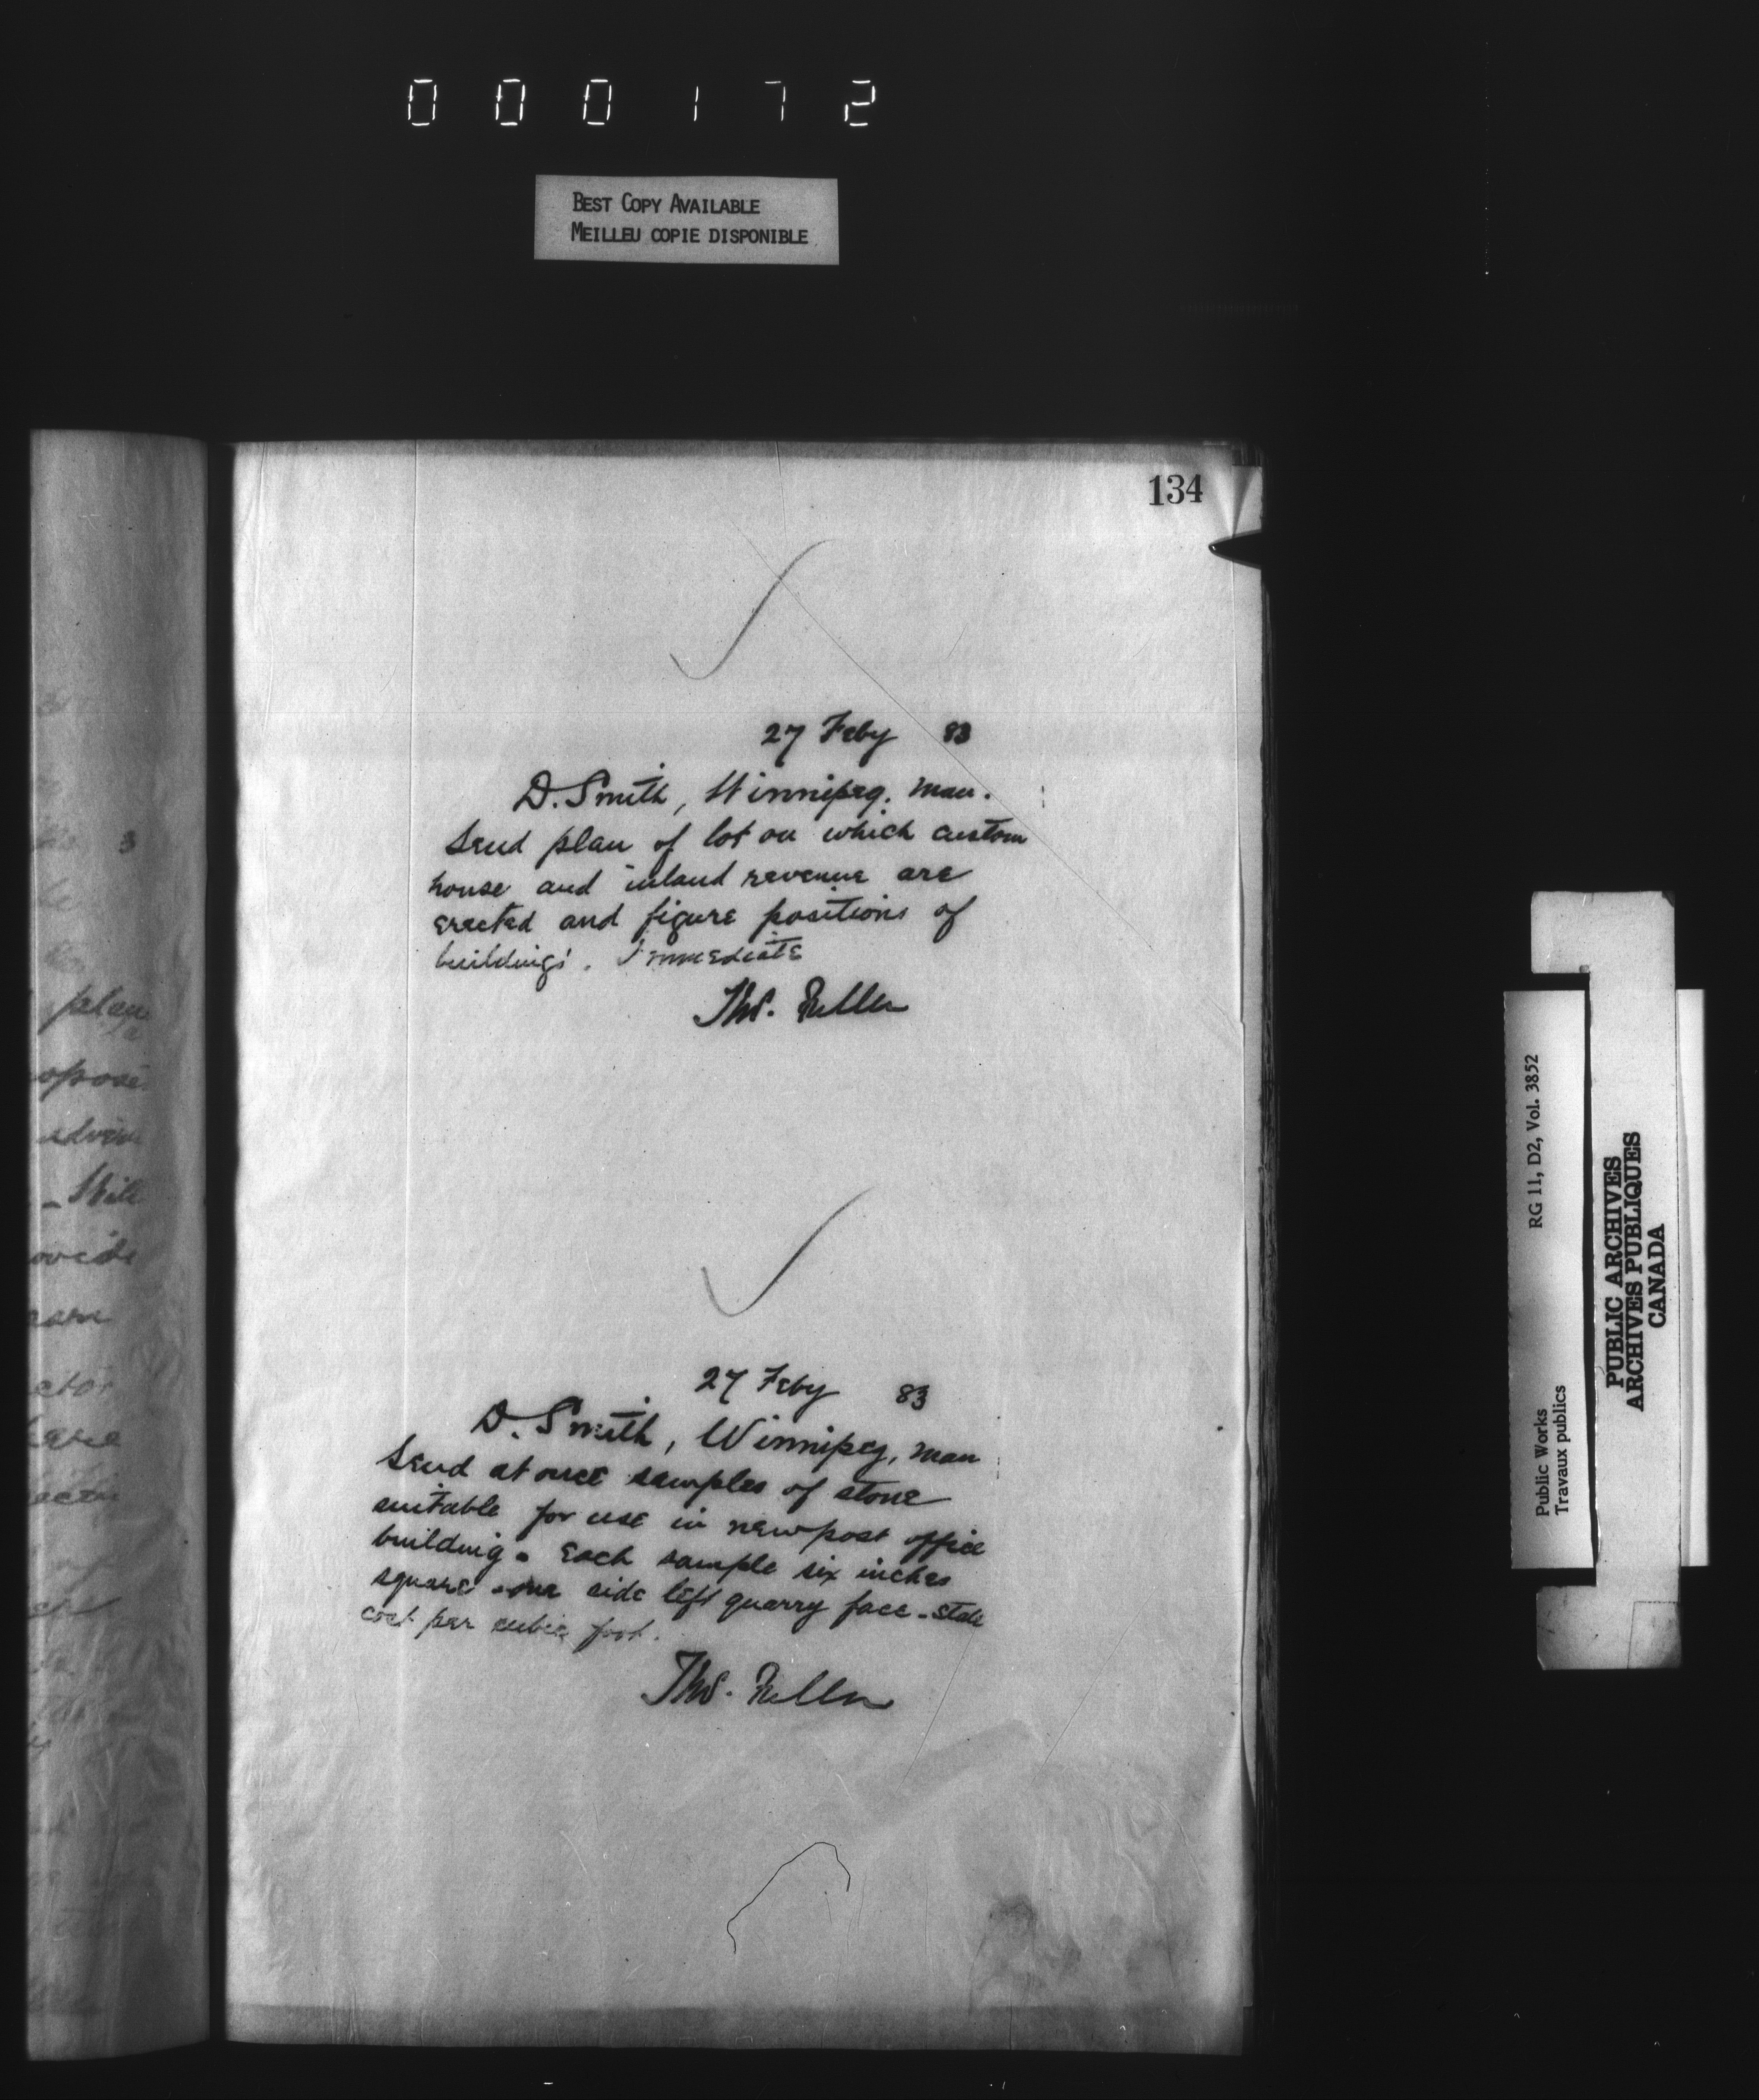 000172
BEST COPY AVAILABLE
MEILLEU COPIE DISPONIBLE
134
27 Feby 83
D. Smith, Winnipeg. Man.
Send plan of lot on which custom
house and inland revenue are
erected and figure positions of
buildings. Immediate
Thos. Fuller
27 Feby 83
D. Smith, Winnipeg, Man
Send at once samples of stone
suitable for use in new post office
building. Each sample six inches
square - one side left quarry face - State
cost per cubic foot.
Thos. Fuller
plan
Will
RG 11, D2, Vol. 3852
Public Works
Travaux publics
PUBLIC ARCHIVES
ARCHIVES PUBLIQUES
CANADA